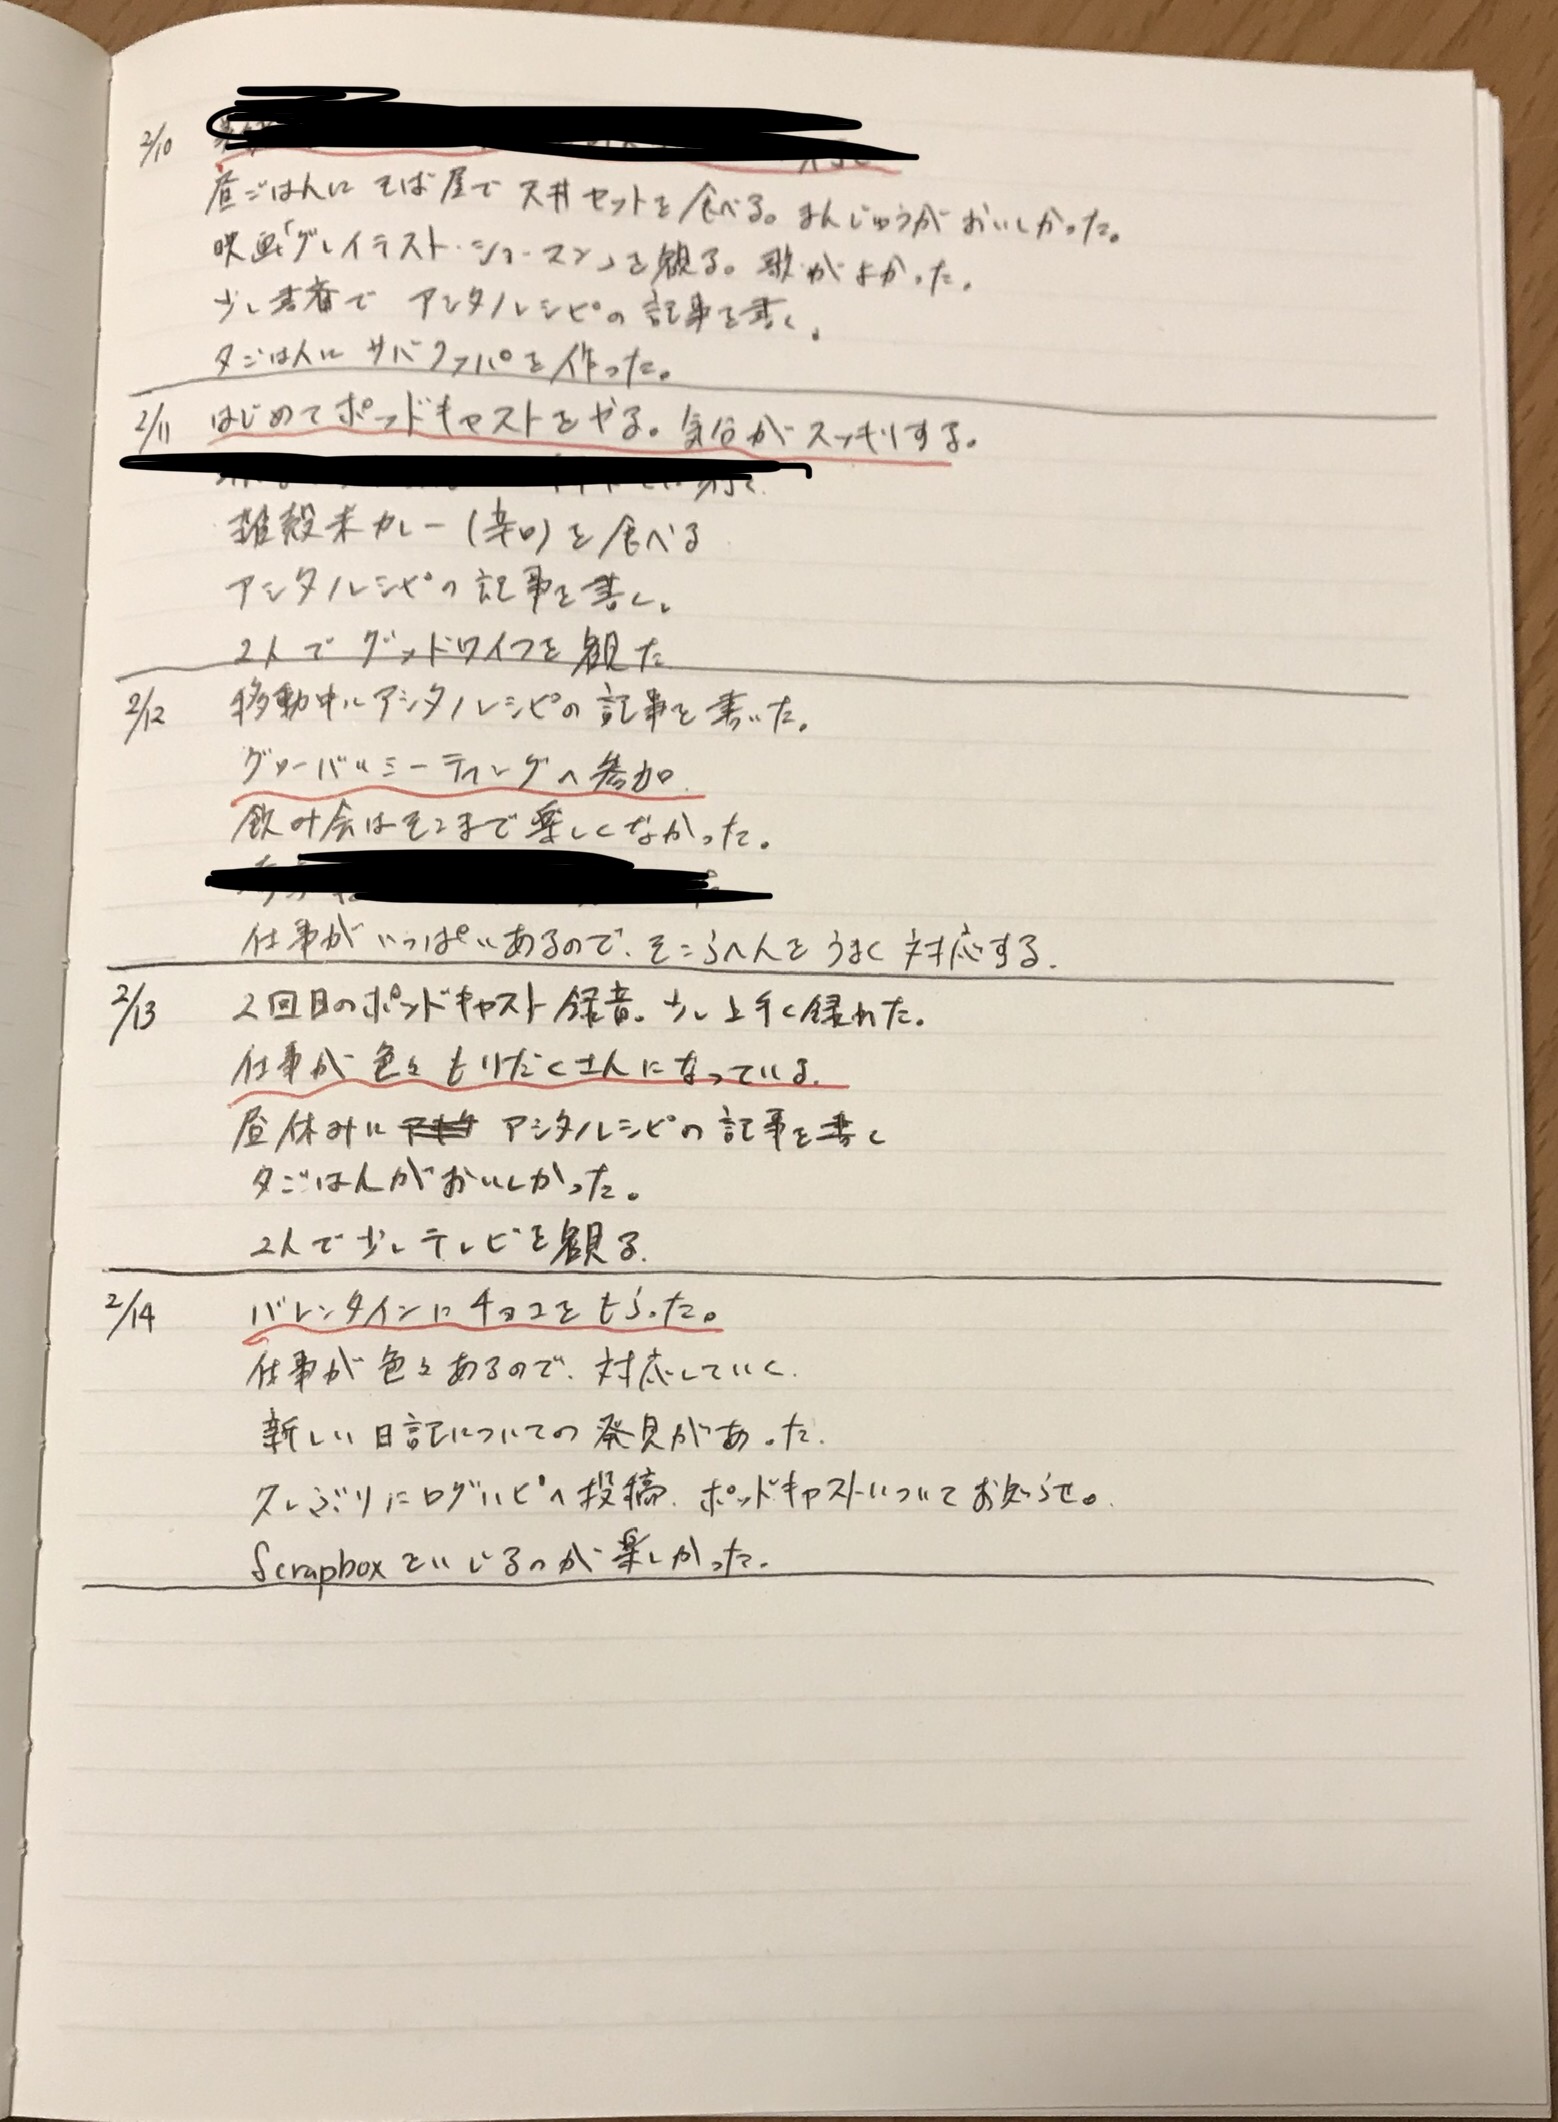 2/10
昼ごはんにそば屋で天丼セットを食べる。まんじゅうがおいしかった。
映画「グレイテスト・ショーマン」を観る。歌がよかった。
少し書斎で アシタノレシピの記事を書く。
夕ごはんに サバクッパを作った。
2/11 はじめてポッドキャストをやる。気分がスッキリする。
雑穀米カレー(辛口)を食べる
アシタノレシピの記事を書く。
2人で グッドワイフを観た
2/12 移動中にアシタノレシピの記事を書いた。
グローバルミーティングへ参加.
飲み会はそこまで楽しくなかった。
仕事がいっぱいあるので、そこらへんをうまく対応する.
2/13 2回目のポッドキャスト録音。少し上手く録れた。
仕事が色々もりだくさんになっている.
昼休みに アシタノレシピの記事を書く
夕ごはんがおいしかった。
2人で少しテレビを観る.
2/14 バレンタインにチョコをもらった。
仕事が色々あるので、対応していく.
新しい日記についての発見があった.
久しぶりにログハピへ投稿. ポッドキャストについてお知らせ。
Scrapboxをいじるのが楽しかった.